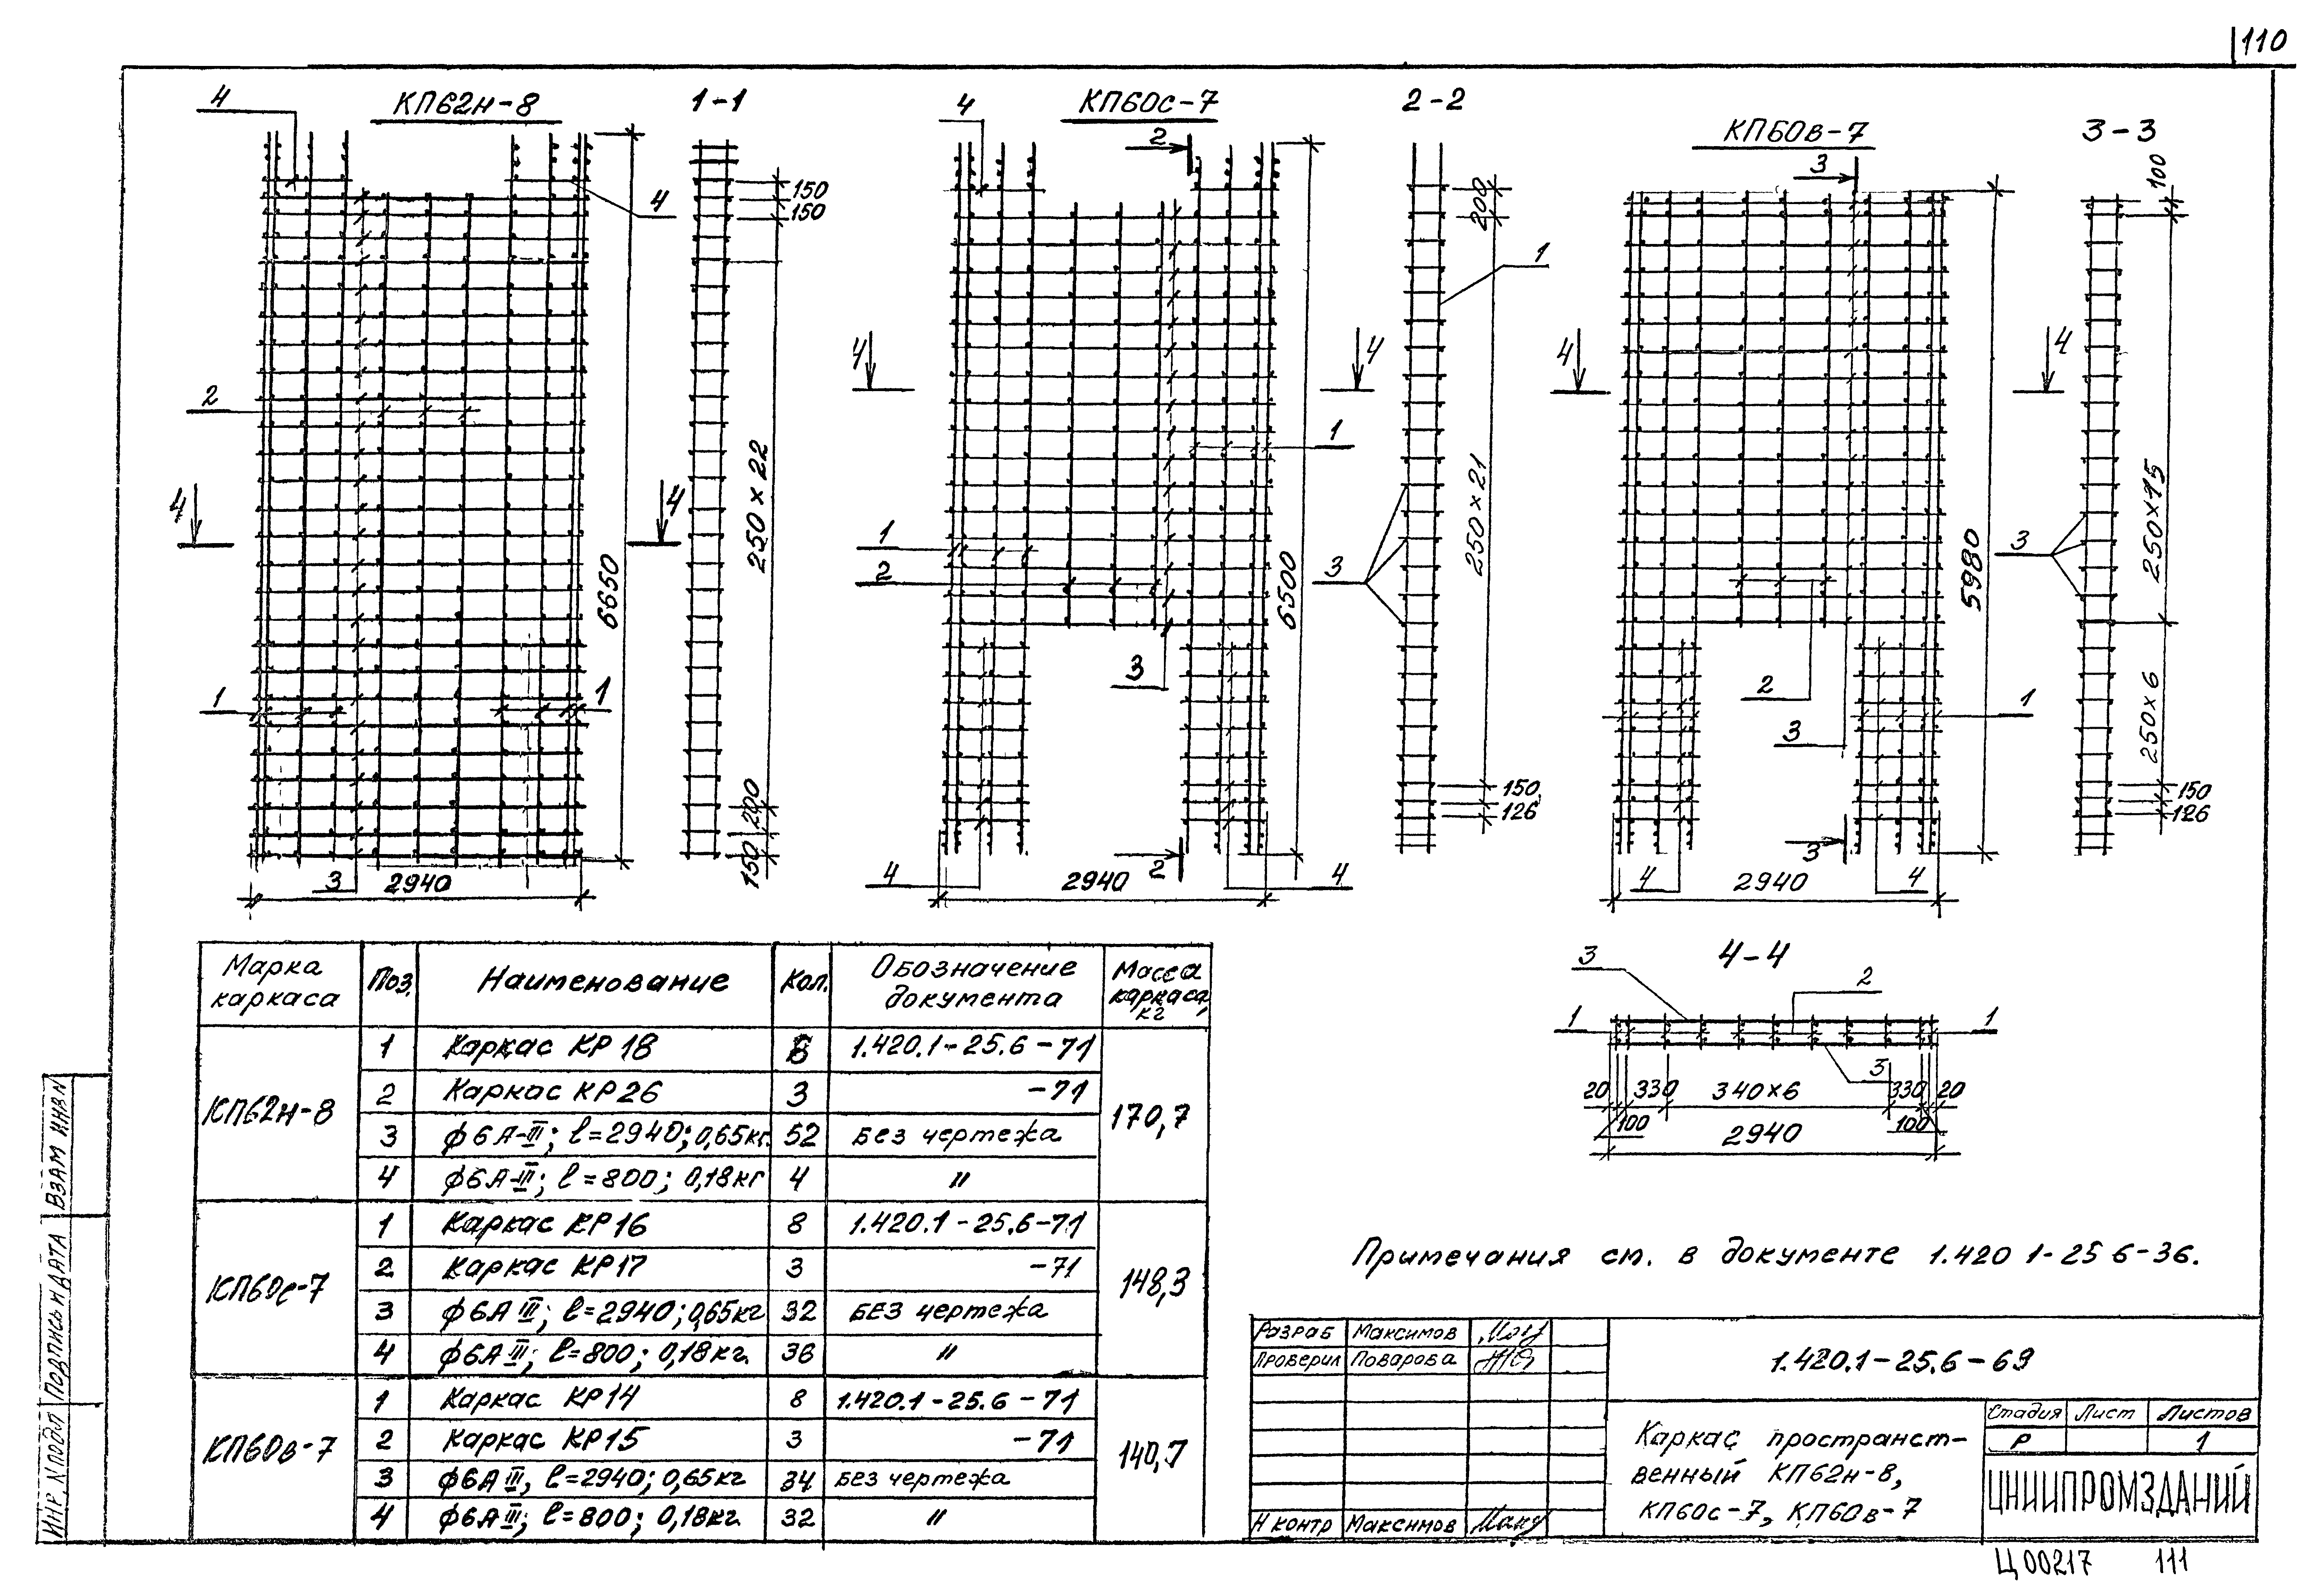 110
КП62н-8
1-1
КП60с-7
2-2
КП60в-7
3-3
4
4
2
4
4
1
1
3
2940
6650
150
150
250×22
200
150
4
2
4
4
1
2
1
3
3
4
4
2
2940
6500
200
1
250×21
150
126
3
4
4
2
3
1
3
3
4
4
2940
5980
3
100
250×15
250×6
150
126
4-4
3
2
1
1
3
20
330
340×6
330
20
100
100
2940
Марка каркаса
Поз.
Наименование
Кол.
Обозначение документа
Масса каркаса, кг
КП62н-8
1 Каркас КР18 8 1.420.1-25.6-71
2 Каркас КР26 3 -71
3 ф6А-III; l=2940; 0,65кг. 52 Без чертежа
4 ф6А-III; l=800; 0,18кг 4 "
170,7
КП60с-7
1 Каркас КР16 8 1.420.1-25.6-71
2 Каркас КР17 3 -71
3 ф6АIII; l=2940; 0,65кг 32 БЕЗ чертежа
4 ф6АIII; l=800; 0,18кг. 36 "
148,3
КП60в-7
1 Каркас КР14 8 1.420.1-25.6-71
2 Каркас КР15 3 -71
3 ф6АIII, l=2940; 0,65кг 34 БЕЗ чертежа
4 ф6АIII; l=800; 0,18кг. 32 "
140,7
Примечания см. в документе 1.420 1-25 6-36.
Разраб Максимов
Проверил Поварова
Н контр Максимов
1.420.1-25.6-69
Каркас пространст-
венный КП62н-8,
КП60с-7, КП60в-7
Стадия Лист Листов
Р 1
ЦНИИПРОМЗДАНИЙ
Ц00217 111
ИНР. N подл
Подпись и дата
Взам инв N